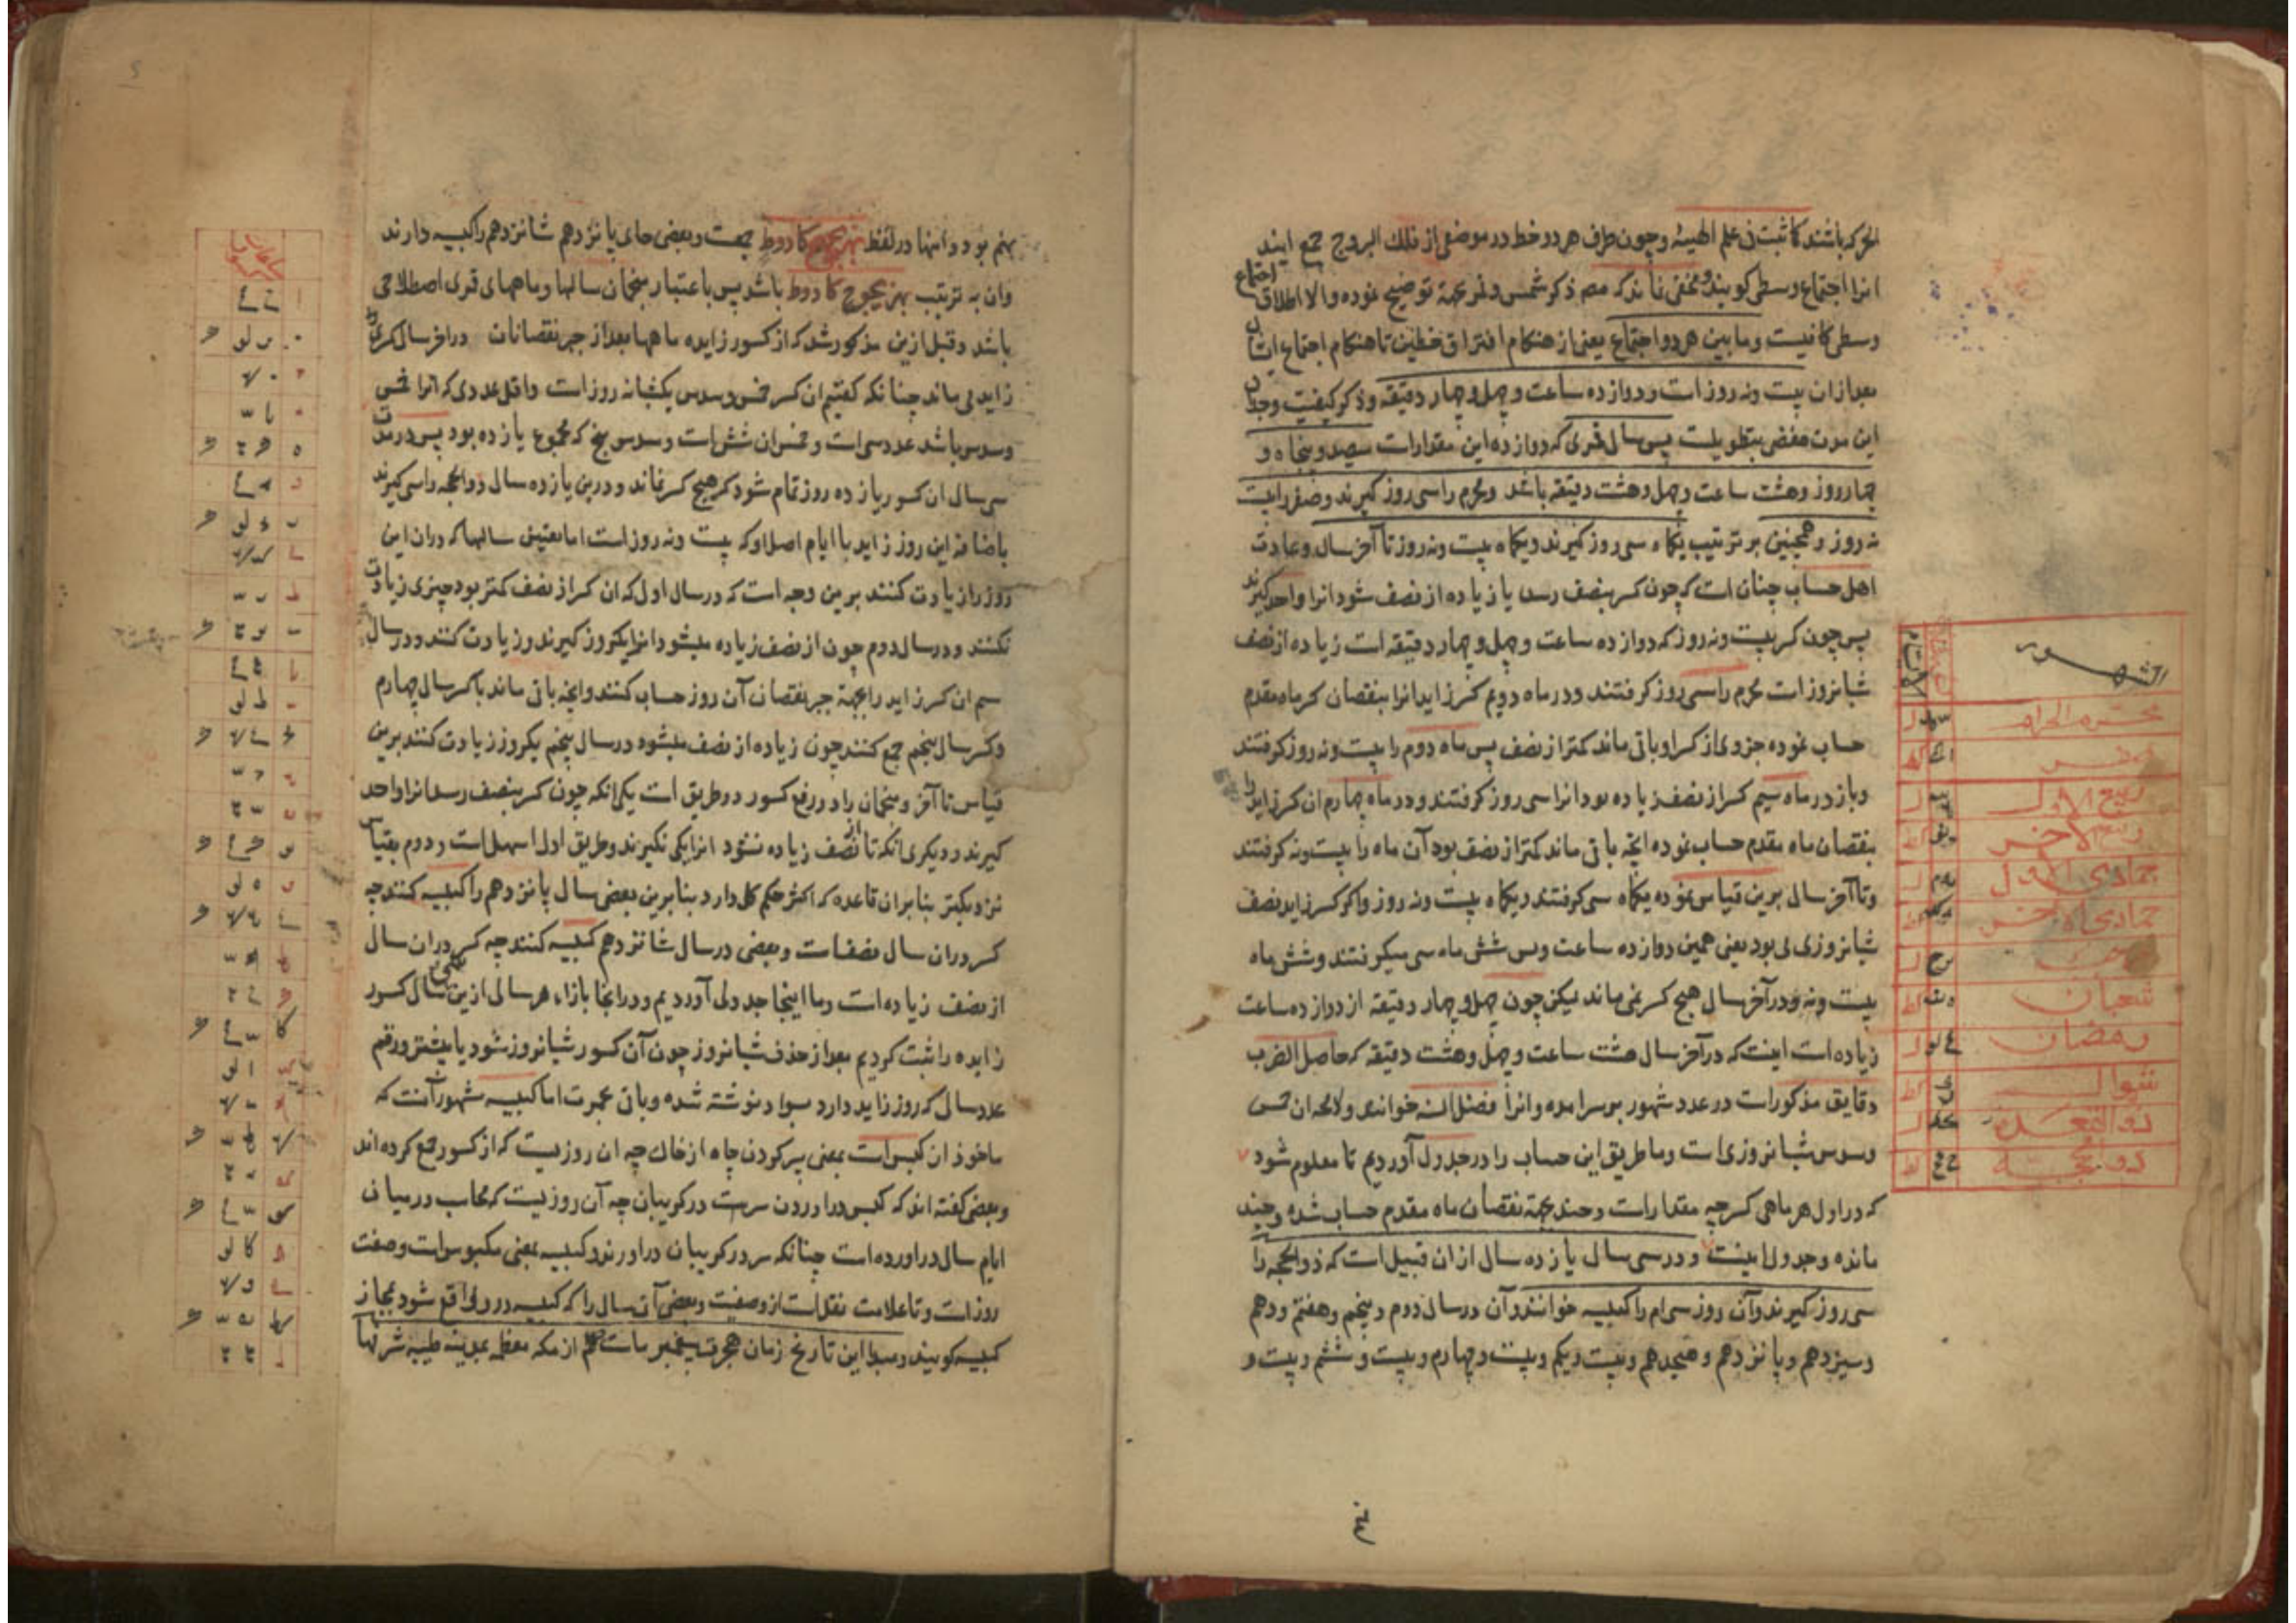 باشند کما ثبت فی علم الهیئه و چون طرف هر دو خط در موضعی از فلک البروج جمع ایند
انرا اجتماع وسطی کویند و مخفی نماند که مصر ذکر شمس و قمر بجهة توضیح نموده والا اطلاق اجتماع
وسطی کافیست و مابین هر دو اجتماع یعنی از هنکام افتراق خطین تا هنکام اجتماع ایشان
بعد ازان بیست ونه روز است و دوازده ساعت و چهل و چهار دقیقه و ذکر کیفیت وجدان
این مدت مفضی بتطویلست پس سال قمری که دوازده این مقدارات سیصد و پنجاه و
چهار روز و هشت ساعت و چهل و هشت دقیقه باشد و محرم را سی روز کیرند و صفر را بیست
نه روز و همچنین بر ترتیب یکماه سی روز کیرند و یکماه بیست ونه روز تا آخر سال و عادت
اهل حساب چنان است که چون کسر بنصف رسد یا زیاده از نصف شود انرا واحد کیرند
پس چون کسر بیست ونه روز که دوازده ساعت و چهل و چهار دقیقه است زیاده از نصف
شبانروز است محرم را سی روز کرفتند و در ماه دویم کسر زاید انرا بنقصان کسر ماه مقدم
حساب نموده جزوی از کسر او باقی ماند کمتر از نصف پس ماه دوم را بیست ونه روز کرفتند
و باز در ماه سیم کسر از نصف زیاده بود انرا سی روز کرفتند و در ماه چهارم ان کسر زاید را
بنقصان ماه مقدم حساب نموده انچه باقی ماند کمتر از نصف بود آن ماه را بیست ونه کرفتند
و تا آخر سال برین قیاس نموده یکماه سی کرفتند و یکماه بیست ونه روز و اکر کسر زاید نصف
شبانروزی بودی یعنی همین دوازده ساعت وبس شش ماه سی میکرفتند و شش ماه
بیست ونه و در آخر سال هیچ کسر نمی ماند لیکن چون چهل و چهار دقیقه از دوازده ساعت
زیاده است اینست که در آخر سال هشت ساعت و چهل و هشت دقیقه که حاصل الضرب
دقایق مذکورات در عدد شهور بوسرامده وانرا فضل السنه خوانند ولامحه ان خمس
وسدس شبانروزی است و ما طریق این حساب را در جدول آوردیم تا معلوم شود
که در اول هر ماهی کسر چه مقدار است و چند بجهة نقصان ماه مقدم حساب شده و چند
مانده و جدول اینست و در سی سال یازده سال از ان قبیل است که ذوالحجه را
سی روز کیرند وآن روز سی ام را کبیسه خوانند وآن در سال دوم و پنجم و هفتم و دهم
وسیزدهم و پانزدهم و هیجدهم و بیست و یکم و بیست و چهارم و بیست و ششم و بیست و
الشهور
محرم الحرام
صفر
ربیع الاول
ربیع الاخر
جمادی الاول
جمادی الاخر
رجب
شعبان
رمضان
شوال
ذو القعده
ذو الحجه
نهم بود و اینها در لفظ بهزیجوح کادوط جمعست و بعضی جای پانزدهم شانزدهم را کبیسه دارند
وان به ترتیب بهزیجوح کادوط باشد پس باعتبار منجمان سالها و ماههای قمری اصطلاحی
باشد و قبل ازین مذکور شد که از کسور زایده ماهها بعد از جبر نقصانات در اخر سال کسری
زاید می ماند چنانکه کفتیم ان کسر خمس وسدس یکشبانه روز است و اقل عددی که انرا خمس
وسدس باشد عدد سی است و خمس ان شش است وسدس پنج که مجموع یازده بود پس در مدت
سی سال ان کسور یازده روز تمام شود که هیچ کسر نماند و درین یازده سال ذوالحجه را سی کیرند
باضافه این روز زاید با ایام اصل او که بیست ونه روز است اما تعیین سالها که دران این
روز را زیادت کنند برین وجه است که در سال اول که ان کسر از نصف کمتر بود چیزی زیادت
نکنند و در سال دوم چون از نصف زیاده میشود انرا یکروز کیرند و زیادت کنند و در سال
سیم ان کسر زاید را بجهة جبر نقصان آن روز حساب کنند وانچه باقی ماند با کسر سال چهارم
وکسر سال پنجم جمع کنند چون زیاده از نصف میشود در سال پنجم یکروز زیادت کنند برین
قیاس تا آخر و منجمان را در رفع کسور دو طریق است یکی انکه چون کسر بنصف رسد انرا واحد
کیرند و دیکری انکه تا از نصف زیاده نشود انرا یکی نکیرند و طریق اول اسهل است و دوم بقیاس
نزدیکتر بنا بران قاعده که اکثر حکم کل دارد بنا برین بعضی سال پانزدهم را کبیسه کنند چه
کسر دران سال نصفست و بعضی در سال شانزدهم کبیسه کنند چه کسر دران سال
از نصف زیاده است و ما اینجا جدولی آوردیم و در انجا بازاء هر سالی ازین سی سال کسور
زایده را ثبت کردیم بعد از حذف شبانروز چون آن کسور شبانروز شود یا بیشتر و رقم
عدد سال که روز زاید دارد بسواد نوشته شده و باقی بحمرت اما کبیسه مشهور آنست که
ماخوذ از کبس است بمعنی پر کردن چاه از خاک چه ان روزیست که از کسور جمع کرده اند
و بعضی کفته اند که کبس در اوردن سر است در کریبان چه آن روزیست که محاسب در میان
ایام سال در اورده است چنانکه سر در کریبان در اورند و کبیسه بمعنی مکبوس است وصفت
روز است و تا علامت نقل است از وصفیت و بعضی آن سال را که کبیسه در و واقع شود بمجاز
کبیسه کویند و مبدا این تاریخ زمان هجرت پیغمبر ماست صلعم از مکه معظمه بمدینه طیبه شرفها